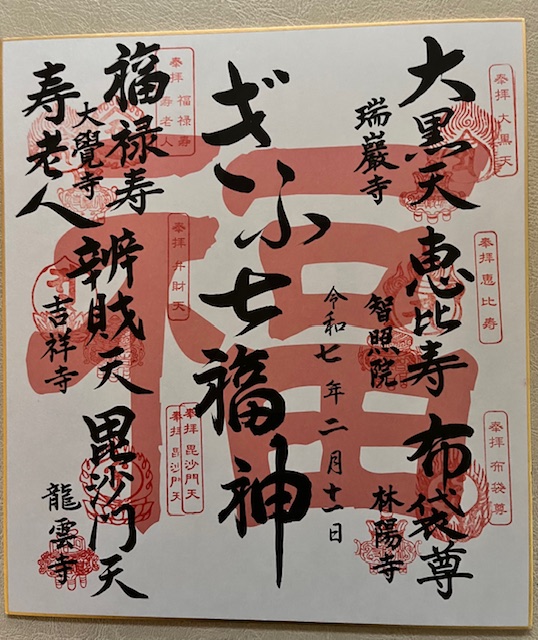 奉拝 大黒天
大黒天
瑞巖寺
奉拝 恵比寿
恵比寿
智照院
奉拝 布袋尊
布袋尊
林陽寺
ぎふ七福神
令和七年二月十一日
奉拝 福禄寿
寿老人
福禄寿
大覺寺
寿老人
奉拝 弁財天
辨財天
吉祥寺
奉拝 毘沙門天
奉拝 毘沙門天
毘沙門天
龍雲寺
福